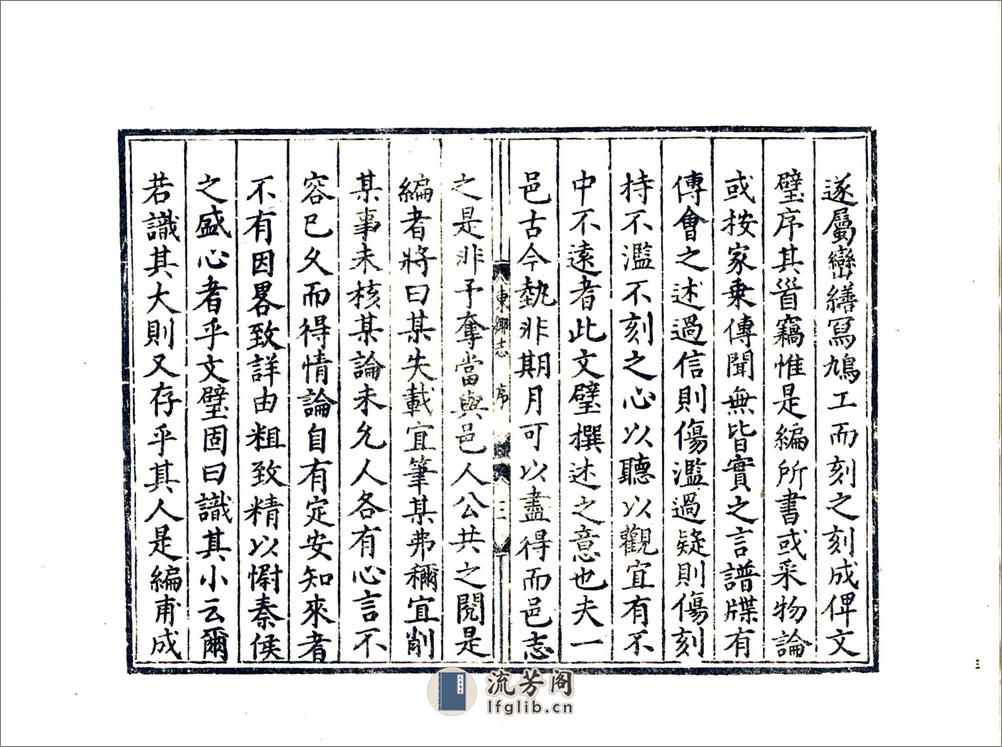 遂屬巒繕寫鳩工而刻之刻成俾文
璧序其首竊惟是編所書或采物論
或按家乗傳聞無皆實之言譜牒有
傅會之述過信則傷濫過疑則傷刻
持不濫不刻之心以聽以觀宜有不
中不遠者此文璧撰述之意也夫一
邑古今埶非期月可以盡得而邑志
東鄉志 序 三
之是非予奪當與邑人公共之閱是
編者將曰某失載宜筆某弗稱宜削
某事未核某論未允人各有心言不
容已久而得情論自有定安知來者
不有因畧致詳由粗致精以慰秦侯
之盛心者乎文璧固曰識其小云爾
若識其大則又存乎其人是編甫成
三
流芳阁
lfglib.cn